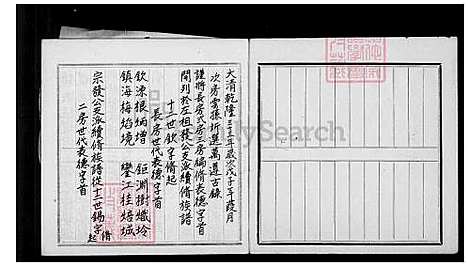 大清乾隆三十三年歲次戊子年葭月
次房雲孫圻選萬選古錄
謹將長房弍房三房編脩表德字首
開列於左祖發公支派續脩族譜
十二世欽字脩起
長房世代表德字首
欽涑根炳增 鉅淵樹熾坽
鎮海梅焰境 鑾江桂焙城
宗發公支派續脩族譜從十二世錫字脩起
二房世代表德字首
MySearch